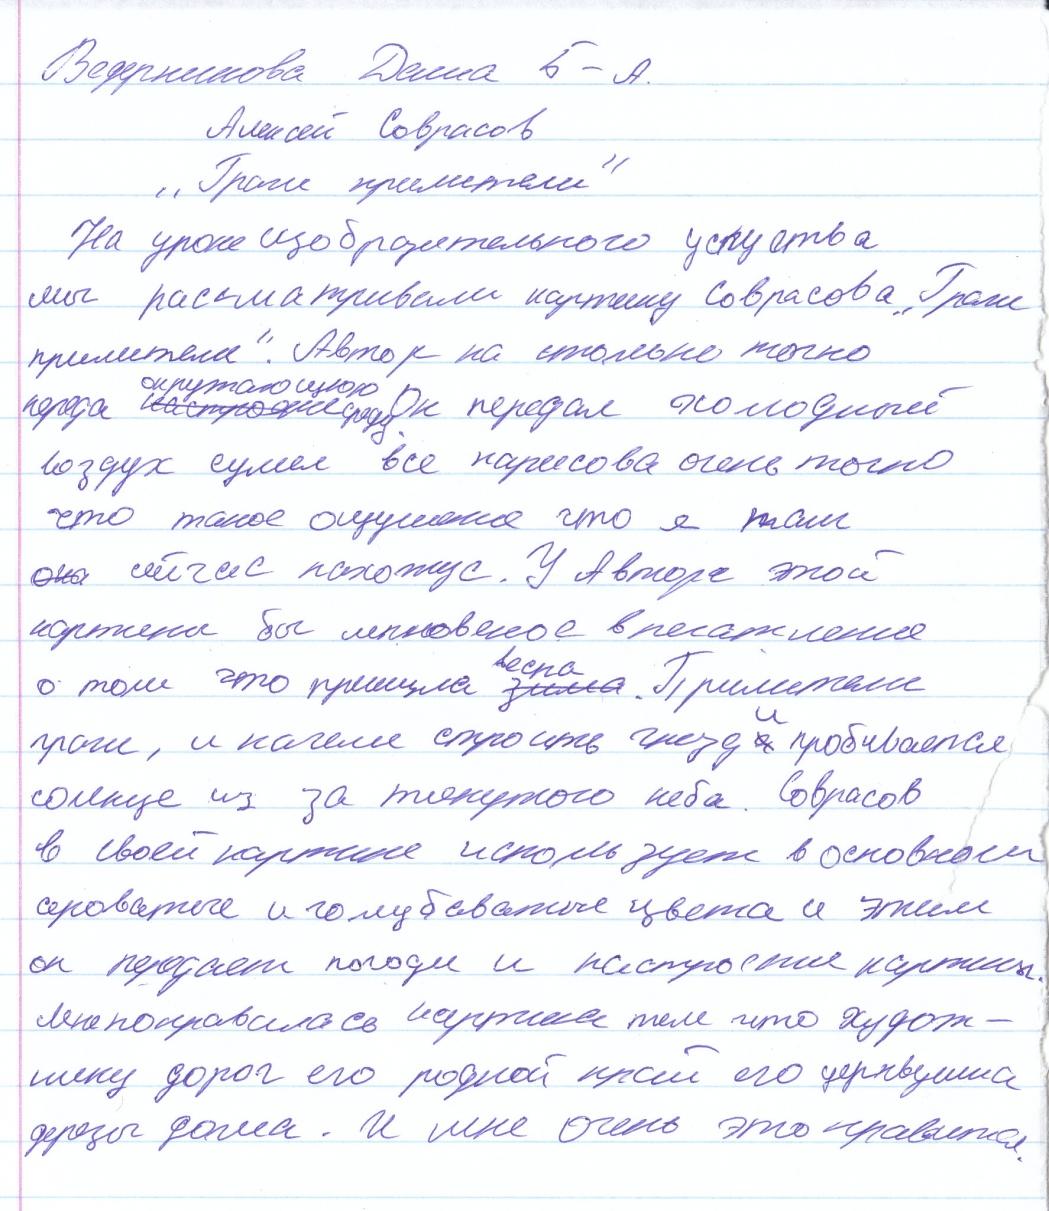 Ведерникова Даша 5-А.
Алексей Соврасов
„Грачи прилители"
На уроке изобразительного искуства
мы рассматривали картину Соврасова „Грачи
прилители". Автор на столько точно
переда окружающюю среду. Он передал холодный
воздух сумел все нарисова очень точно
что такое ощущение что я там
сейчас нахожус. У Автора этой
картины бы мгновеное впечатление
о том что пришла весна. Прилители
грачи, и начели строить гнезд и пробивается
солнце из за тонутого неба. Соврасов
в своей картине использует в основном
сероватые и голубоватые цвета и этим
он передает погоди и настроение картины.
Мне понравилась картина тем что худож-
нику дорог его родной край его церквушка
березы дома. И мне очень это нравится.